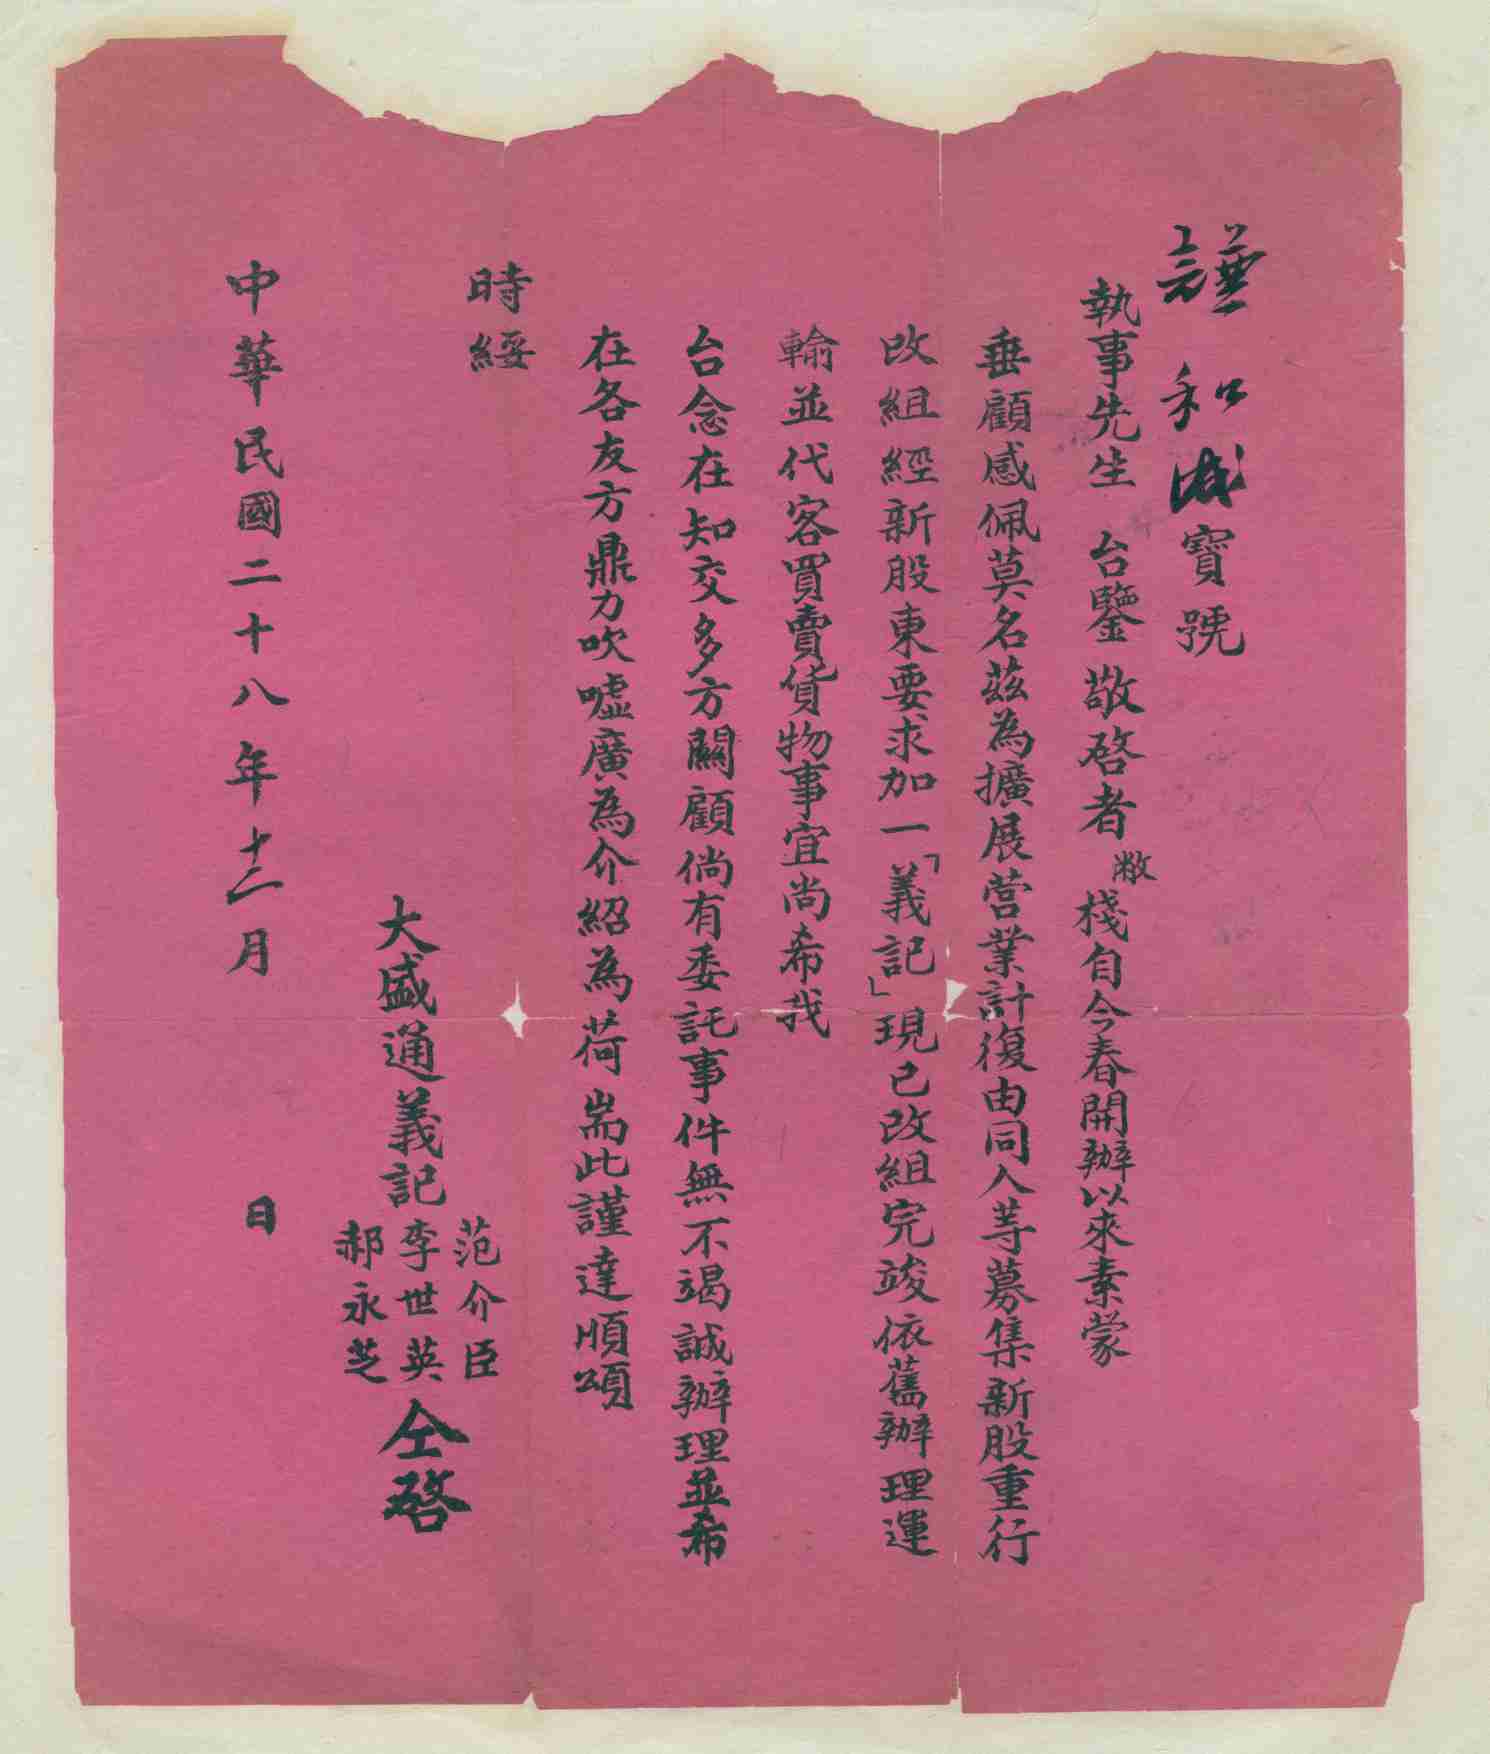 謙和成寶號
執事先生 台鑒敬啓者敝棧自今春開辦以來素蒙
垂顧感佩莫名茲為擴展營業計復由同人等募集新股重行
改組經新股東要求加一「義記」現已改組完竣依舊辦理運
輸並代客買賣貨物事宜尚希我
台念在知交多方關顧倘有委託事件無不竭誠辦理並希
在各友方鼎力吹噓廣為介紹為荷耑此謹達順頌
時綏
大盛通義記
范介臣
李世英
郝永芝
仝啓
中華民國二十八年十二月 日